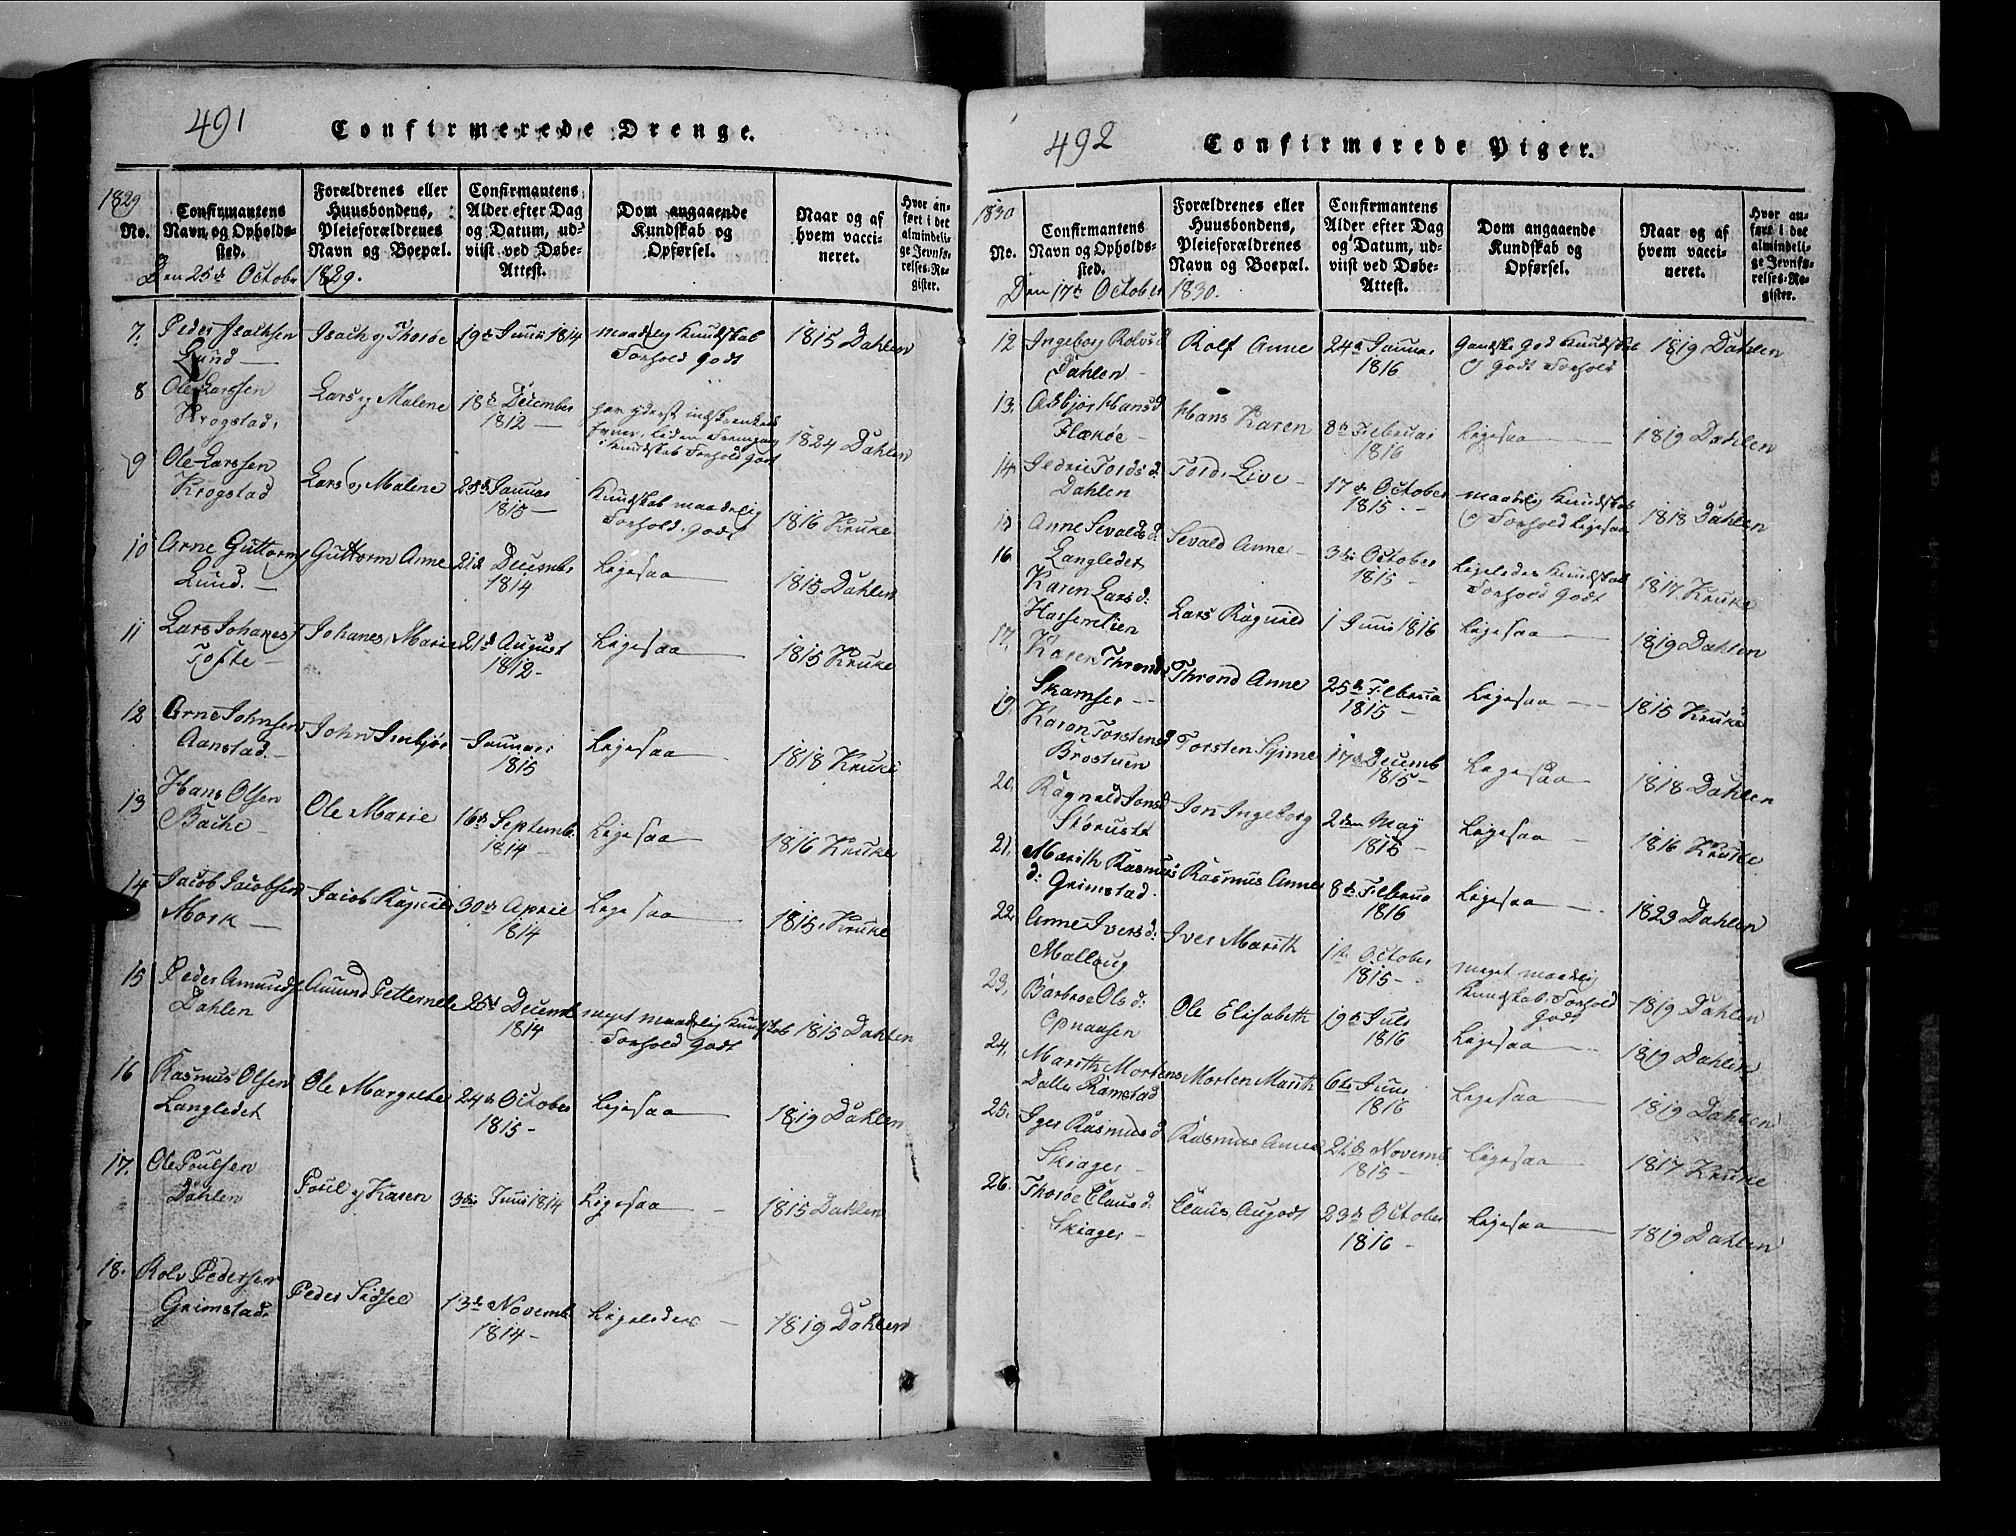 491
Confirmerede Drenge.
1829
No.
Confirmantens
Navn og Opholds-
sted.
Forældrenes eller
Huusbondens,
Pleieforældrenes
Navn og Boepæl.
Confirmantens
Alder efter Dag
og Datum, ud-
viist ved Døbe-
Attest.
Dom angaaende
Kundskab og
Opførsel.
Naar og af
hvem vacci-
neret.
Hvor an-
ført i det
almindeli-
ge Jevnfø-
relses-Re-
gister.
Den 25de October 1829.
7. Peder Isachsen Isach og Thorøe 19de Junii 1814 maadelig Kundskab 1815 Dahlen
Lund Forhold Godt
8 Ole Larssen Lars og Malene 18de December har yderst indskrænkede
Krogstad. 1812 Evner, liden Fremgang 1824 Dahlen
i Kundskab Forhold Godt
9 Ole Larssen Lars og Malene 25de Januar Kundskab maadelig
Krogstad 1815 Forhold Godt 1816 Kruke
10 Arne Guttorms Guttorm Anne 21de December Ligesaa 1815 Dahlen
Lund. 1814
11 Lars Johanes Johanes, Marie 21de August Ligesaa 1815 Kruke
Tofte 1812
12 Arne Johnsen John Imbjør Januar Ligesaa 1818 Kruke
Aanstad. 1815
13 Hans Olsen Ole Marie 16de Septemb. Ligesaa 1816 Kruke
Bache 1814
14 Jacob Jacobsen Jacob Ragnild 30de April Ligesaa 1815. Kruke
Mork 1814
15 Peder Amunds Amund Petternele 25de Decemb meget maadelig Kundskab 1815 Dahlen
Dahlen 1814 Forhold Godt
16 Rasmus Olsen Ole Margrethe 24de October Ligesaa 1819 Dahlen
Langledet 1815
17. Ole Poulsen Poul og Karen 3die Junii 1814 Ligesaa 1815 Dahlen
Dahlen
18. Rolv Pedersen Peder Sidsel 13de Novemb Ligeledes 1819 Dahlen
Grimstad. 1814
492
Confirmerede Piger.
1830
No.
Confirmantens
Navn og Opholds-
sted.
Forældrenes eller
Huusbondens,
Pleieforældrenes
Navn og Boepæl.
Confirmantens
Alder efter Dag
og Datum, ud-
viist ved Døbe-
Attest.
Dom angaaende
Kundskab og
Opførsel.
Naar og af
hvem vacci-
neret.
Hvor an-
ført i det
almindeli-
ge Jevnfø-
relses-Re-
gister.
Den 17de October 1830.
12 Ingeborg Rolvsd Rolf Anne 24de Januar Gandske God Kundskab 1819 Dahlen
Dahlen 1816 og Godt Forhold
13. Asbjør Hansd Hans Karen 8de Februar Ligesaa 1819 Dahlen
Flækøe 1816
14. Tordsd. Tord, Live 17de October maadelig Kundskab 1818 Dahlen
Dahlen 1815 og Forhold Ligesaa
15 Anne Sevaldsd. Sevald Anne 3die October Ligeledes Kundskab 1817 Kruke
Langledet 1815 Forhold Godt
16. Karen Larsd. Lars Ragnild 1 Juni 1816 Ligesaa 1819 Dahlen
17. Karen Thronds Thrond Anne 25de Februa Ligesaa 1815 Kruke
Skamser 1815
19 Karen Torstensd Torsten 17de Decemb Ligesaa 1818 Dahlen
Brostuen 1815
20. Ragnild Jonsd Jon Ingeborg 2den May Ligesaa 1816 Kruke
1815
21. Marith Rasmus Rasmus Anne 8de Februa Ligesaa 1823 Dahlen
d: Grimstad. 1816
22. Anne Iversd: Iver Marith 1ste October meget maadelig
Malloug 1815 Kundskab. Forhold 1819 Dahlen
Godt
23. Barbroe Olsd: Ole Elisabeth 19de Juli Ligesaa 1819 Dahlen
Opnausen 1816
24. Marith Mortens Morten Marith 6te Juni Ligesaa 1819 Dahlen
Datter Ramstad 1816
25. Rasmusd Rasmus Anne 21de Novemb. Ligesaa 1817 Kruke
Skiager 1815
26. Thorøe Clausd. Claus, Augodt 23de October Ligesaa 1819 Dahlen
Skiager 1816